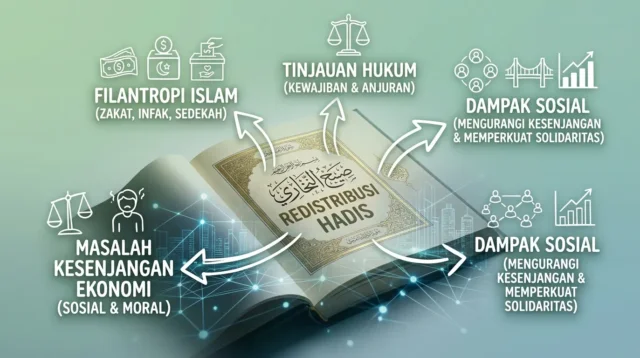 FILANTROPI ISLAM
(ZAKAT, INFAK, SEDEKAH)
TINJAUAN HUKUM
(KEWAJIBAN & ANJURAN)
DAMPAK SOSIAL
(MENGURANGI KESENJANGAN
& MEMPERKUAT SOLIDARITAS)
REDISTRIBUSI
HADIS
MASALAH
KESENJANGAN
EKONOMI
(SOSIAL & MORAL)
DAMPAK SOSIAL
(MENGURANGI
KESENJANGAN &
MEMPERKUAT
SOLIDARITAS)